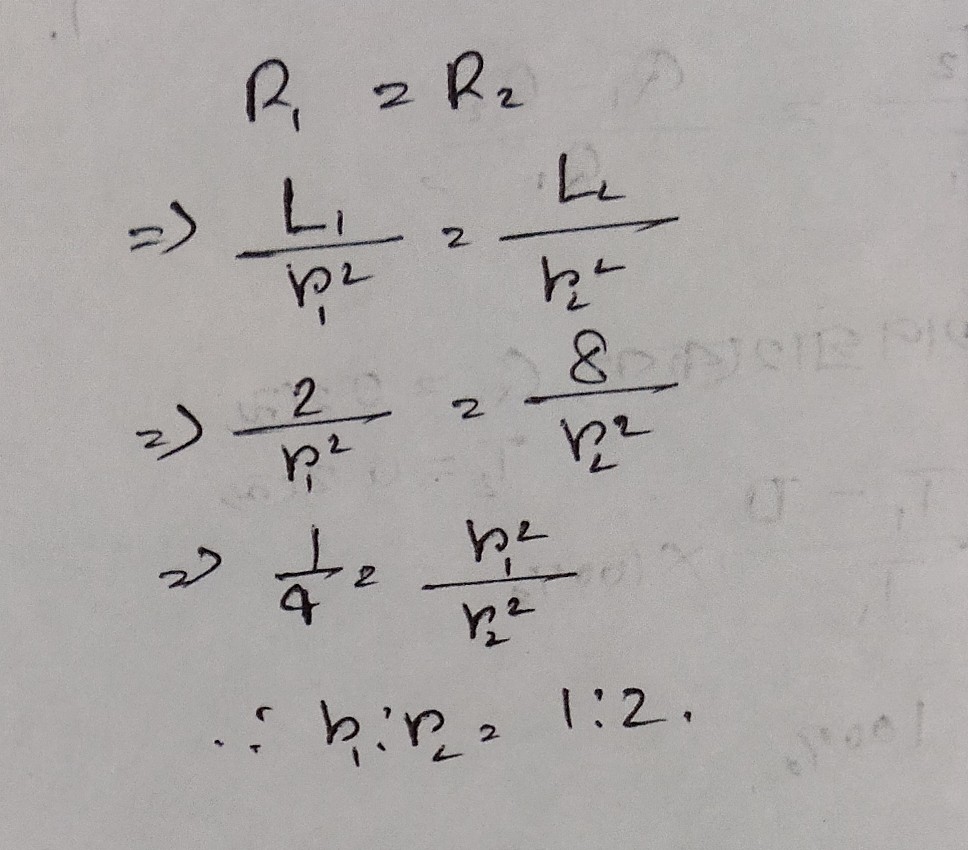 R₁ = R₂
=> L₁/r₁² = L₂/r₂²
=> 2/r₁² = 8/r₂²
=> 1/4 = r₁²/r₂²
∴ r₁:r₂ = 1:2.